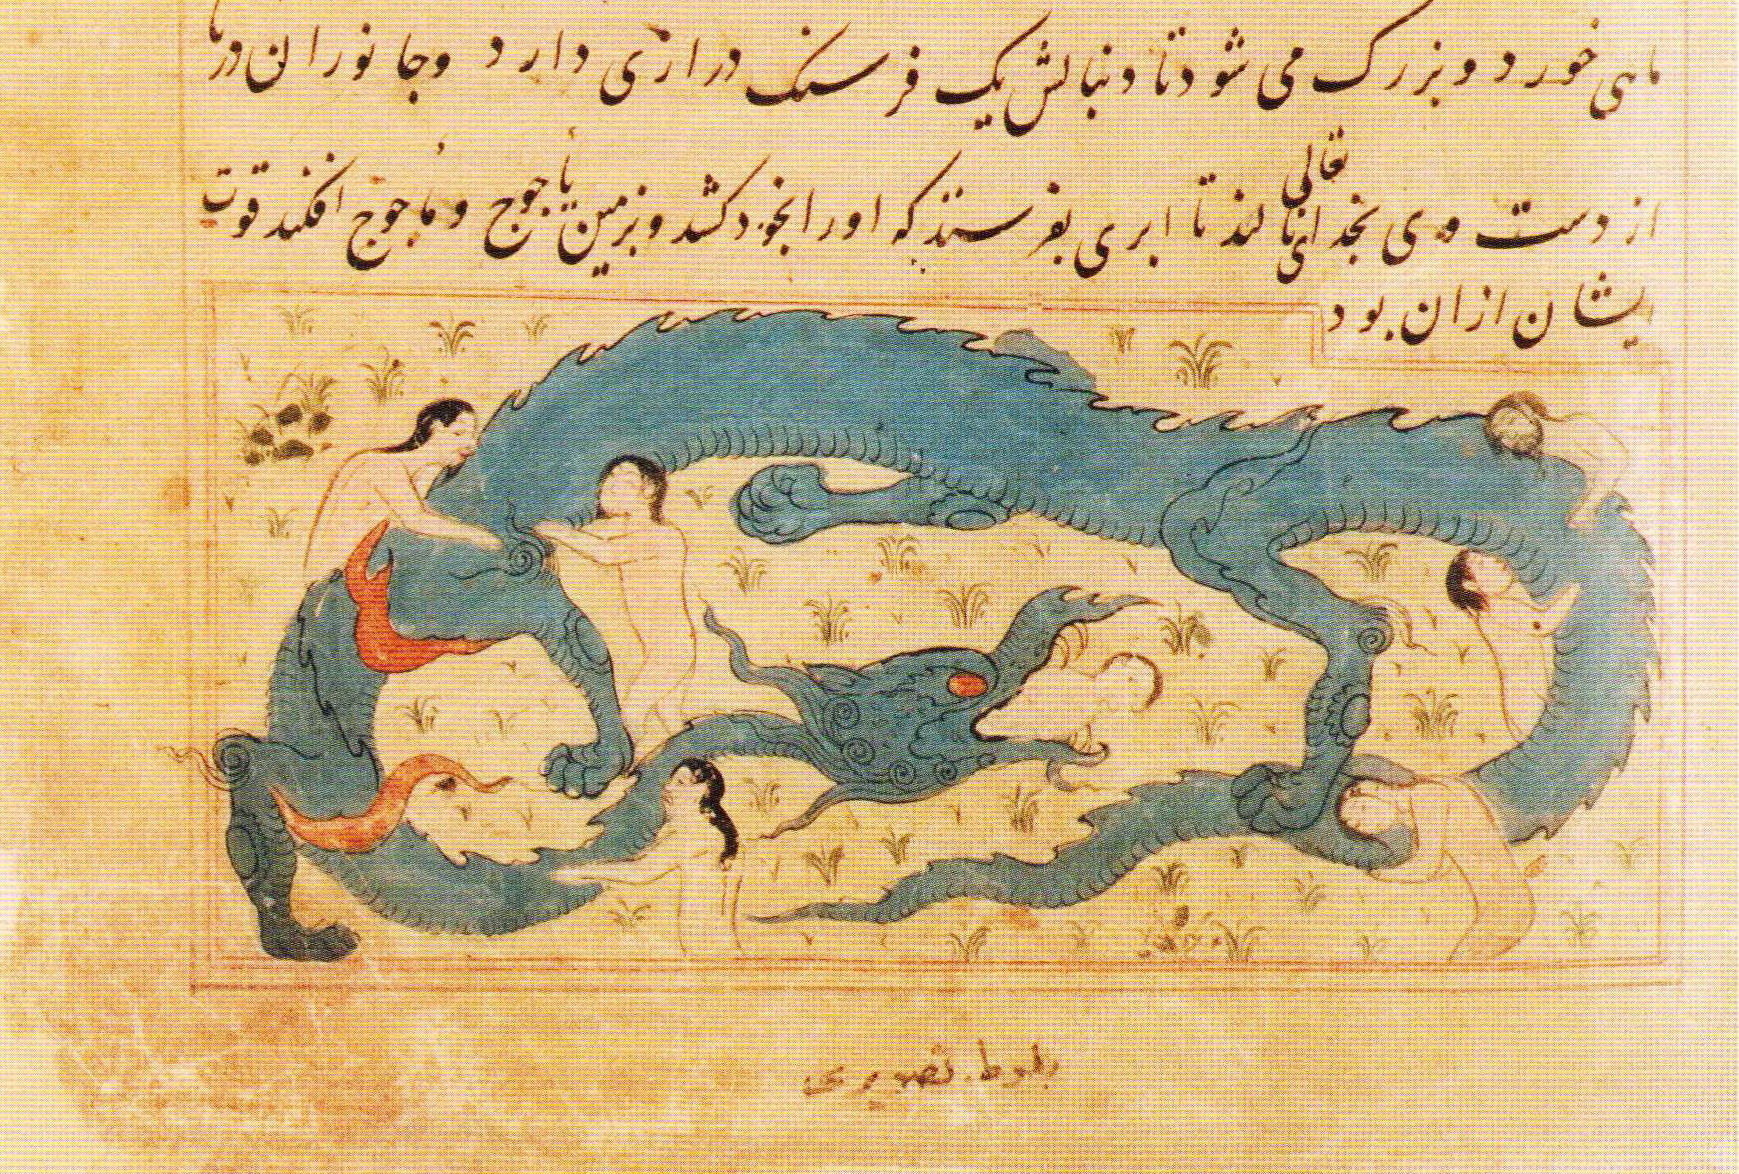 ماهی خورد و بزرک می شود تا دنبالش یک فرسنک درازی دارد و جانوران دریا
از دست وی بخدای تعالی نالند تا ابری بفرستد که او را بخود کشد و بزمین یاجوج و ماجوج افکند قوت
یشان ازان بود